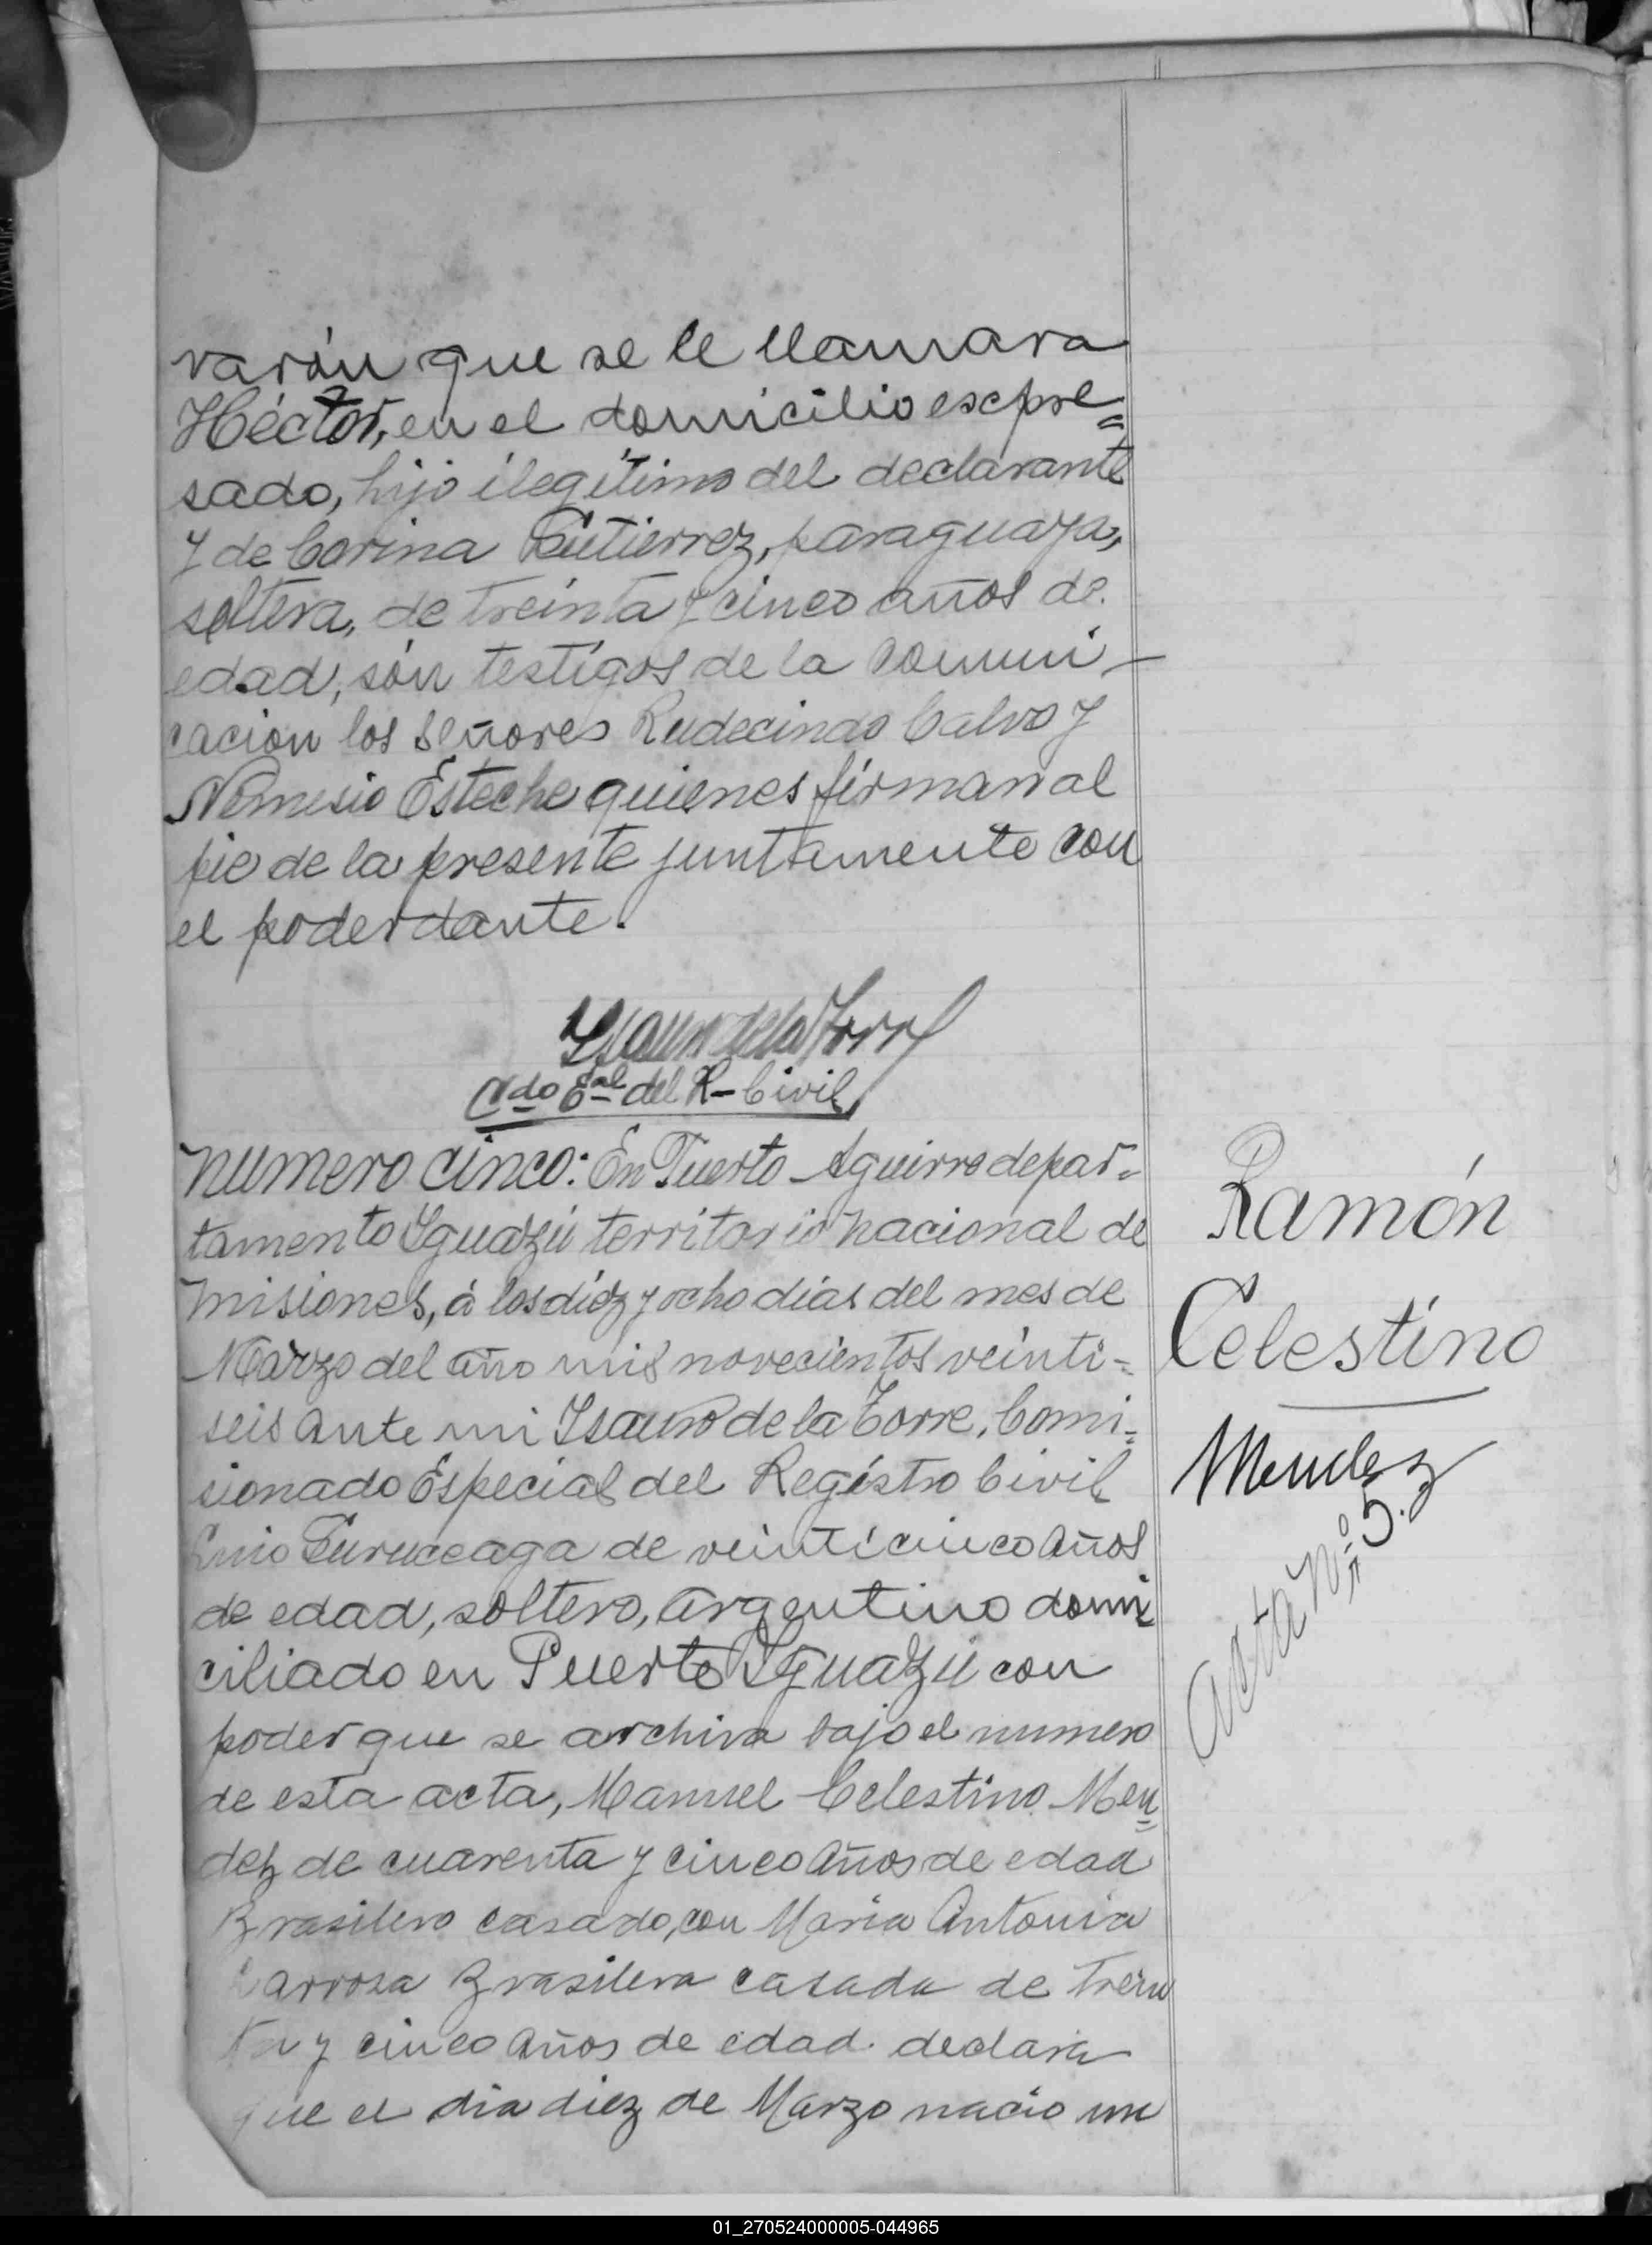 varón que se le llamara
Héctor, en el domicilio escpre=
sado, hijo ilegítimo del declarante
y de Corina Gutierrez, paraguaya,
soltera, de treinta y cinco años de
edad, són testigos de la comuni-
cacion los señores Rudecindo Calvo y
Nemesio Esteche quienes firman al
pie de la presente juntamente con
el poderdante.
Isauro de la Torre
Cdo Eal del R- Civil
Numero cinco: En Puerto Aguirre depar-
tamento Yguazú territorio nacional de
Misiones, á los diéz y ocho dias del mes de
Marzo del año mil novecientos veinti-
seis ante mi Isauro de la Torre, Comi-
sionado Especial del Registro Civil
de veinticinco años
de edad, soltero, argentino domi
ciliado en Puerto Yguazú con
poder que se archiva bajo el numero
de esta acta, Manuel Celestino Men
dez de cuarenta y cinco años de edad
Brasilero casado, con Maria Antonia
Brasilera casada de trein
ta y cinco años de edad. declara
que el dia diez de Marzo nacio un
Ramón
Celestino
Mendez
Acta Nº 5.
01_270524000005-044965